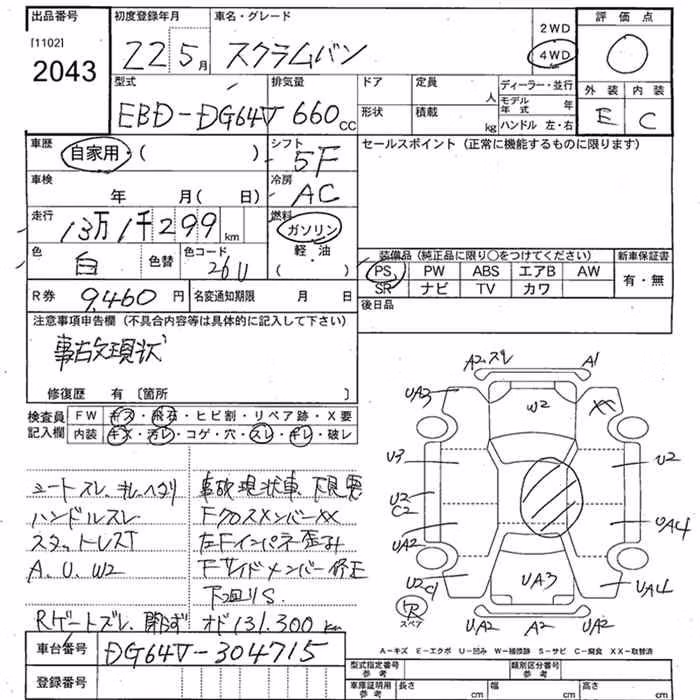 出品番号 初度登録年月 車名・グレード 評価点
[1102] 2043 22 5月 スクラムバン 2WD 4WD 0
型式 排気量 ドア 定員 人 ディーラー・並行 外装 内装
EBD-DG64V 660cc 形状 積載 kg モデル年式 年 ハンドル 左・右 E C
車歴 自家用・( ) シフト 5F セールスポイント(正常に機能するものに限ります)
車検 年 月( 日) 冷房 AC
走行 13万1千299km 燃料 ガソリン 軽・油 ( )
色 白 色替 色コード 26U
装備品(純正品に限り○をつけてください) 新車保証書
PS PW ABS エアB AW 有・無
SR ナビ TV カワ
R券 9,460円 名変通知期限 月 日 後日品
注意事項申告欄(不具合内容等は具体的に記入して下さい)
事故現状
修復歴 有〔箇所 〕
検査員記入欄 FW キズ・飛石・ヒビ割・リペア跡・X要
内装 キズ・汚レ・コゲ・穴・スレ・キレ・破レ
シートスレ、キレ、ヘタリ
ハンドルスレ
A.U.W2
Rゲートズレ、閉らず
事故現状車、下見要
FクロスメンバーXX
左Fインパネ歪み
Fサイドメンバー修正
下回りS
オド131,300km
A2 スレ A1
UA3 W2 XX
U3 U2
U2 C2 UA4
UA2
U2C1 UA3 UA4
R スペア
UA2 A2 UA2
A−キズ E−エクボ U−凹み W−補修跡 S−サビ C−腐食 XX−取替済
車台番号 DG64V-304715
登録番号
型式指定番号 参考 類別区分番号 参考
車庫証明用 参考 長さ cm 幅 cm 高さ cm